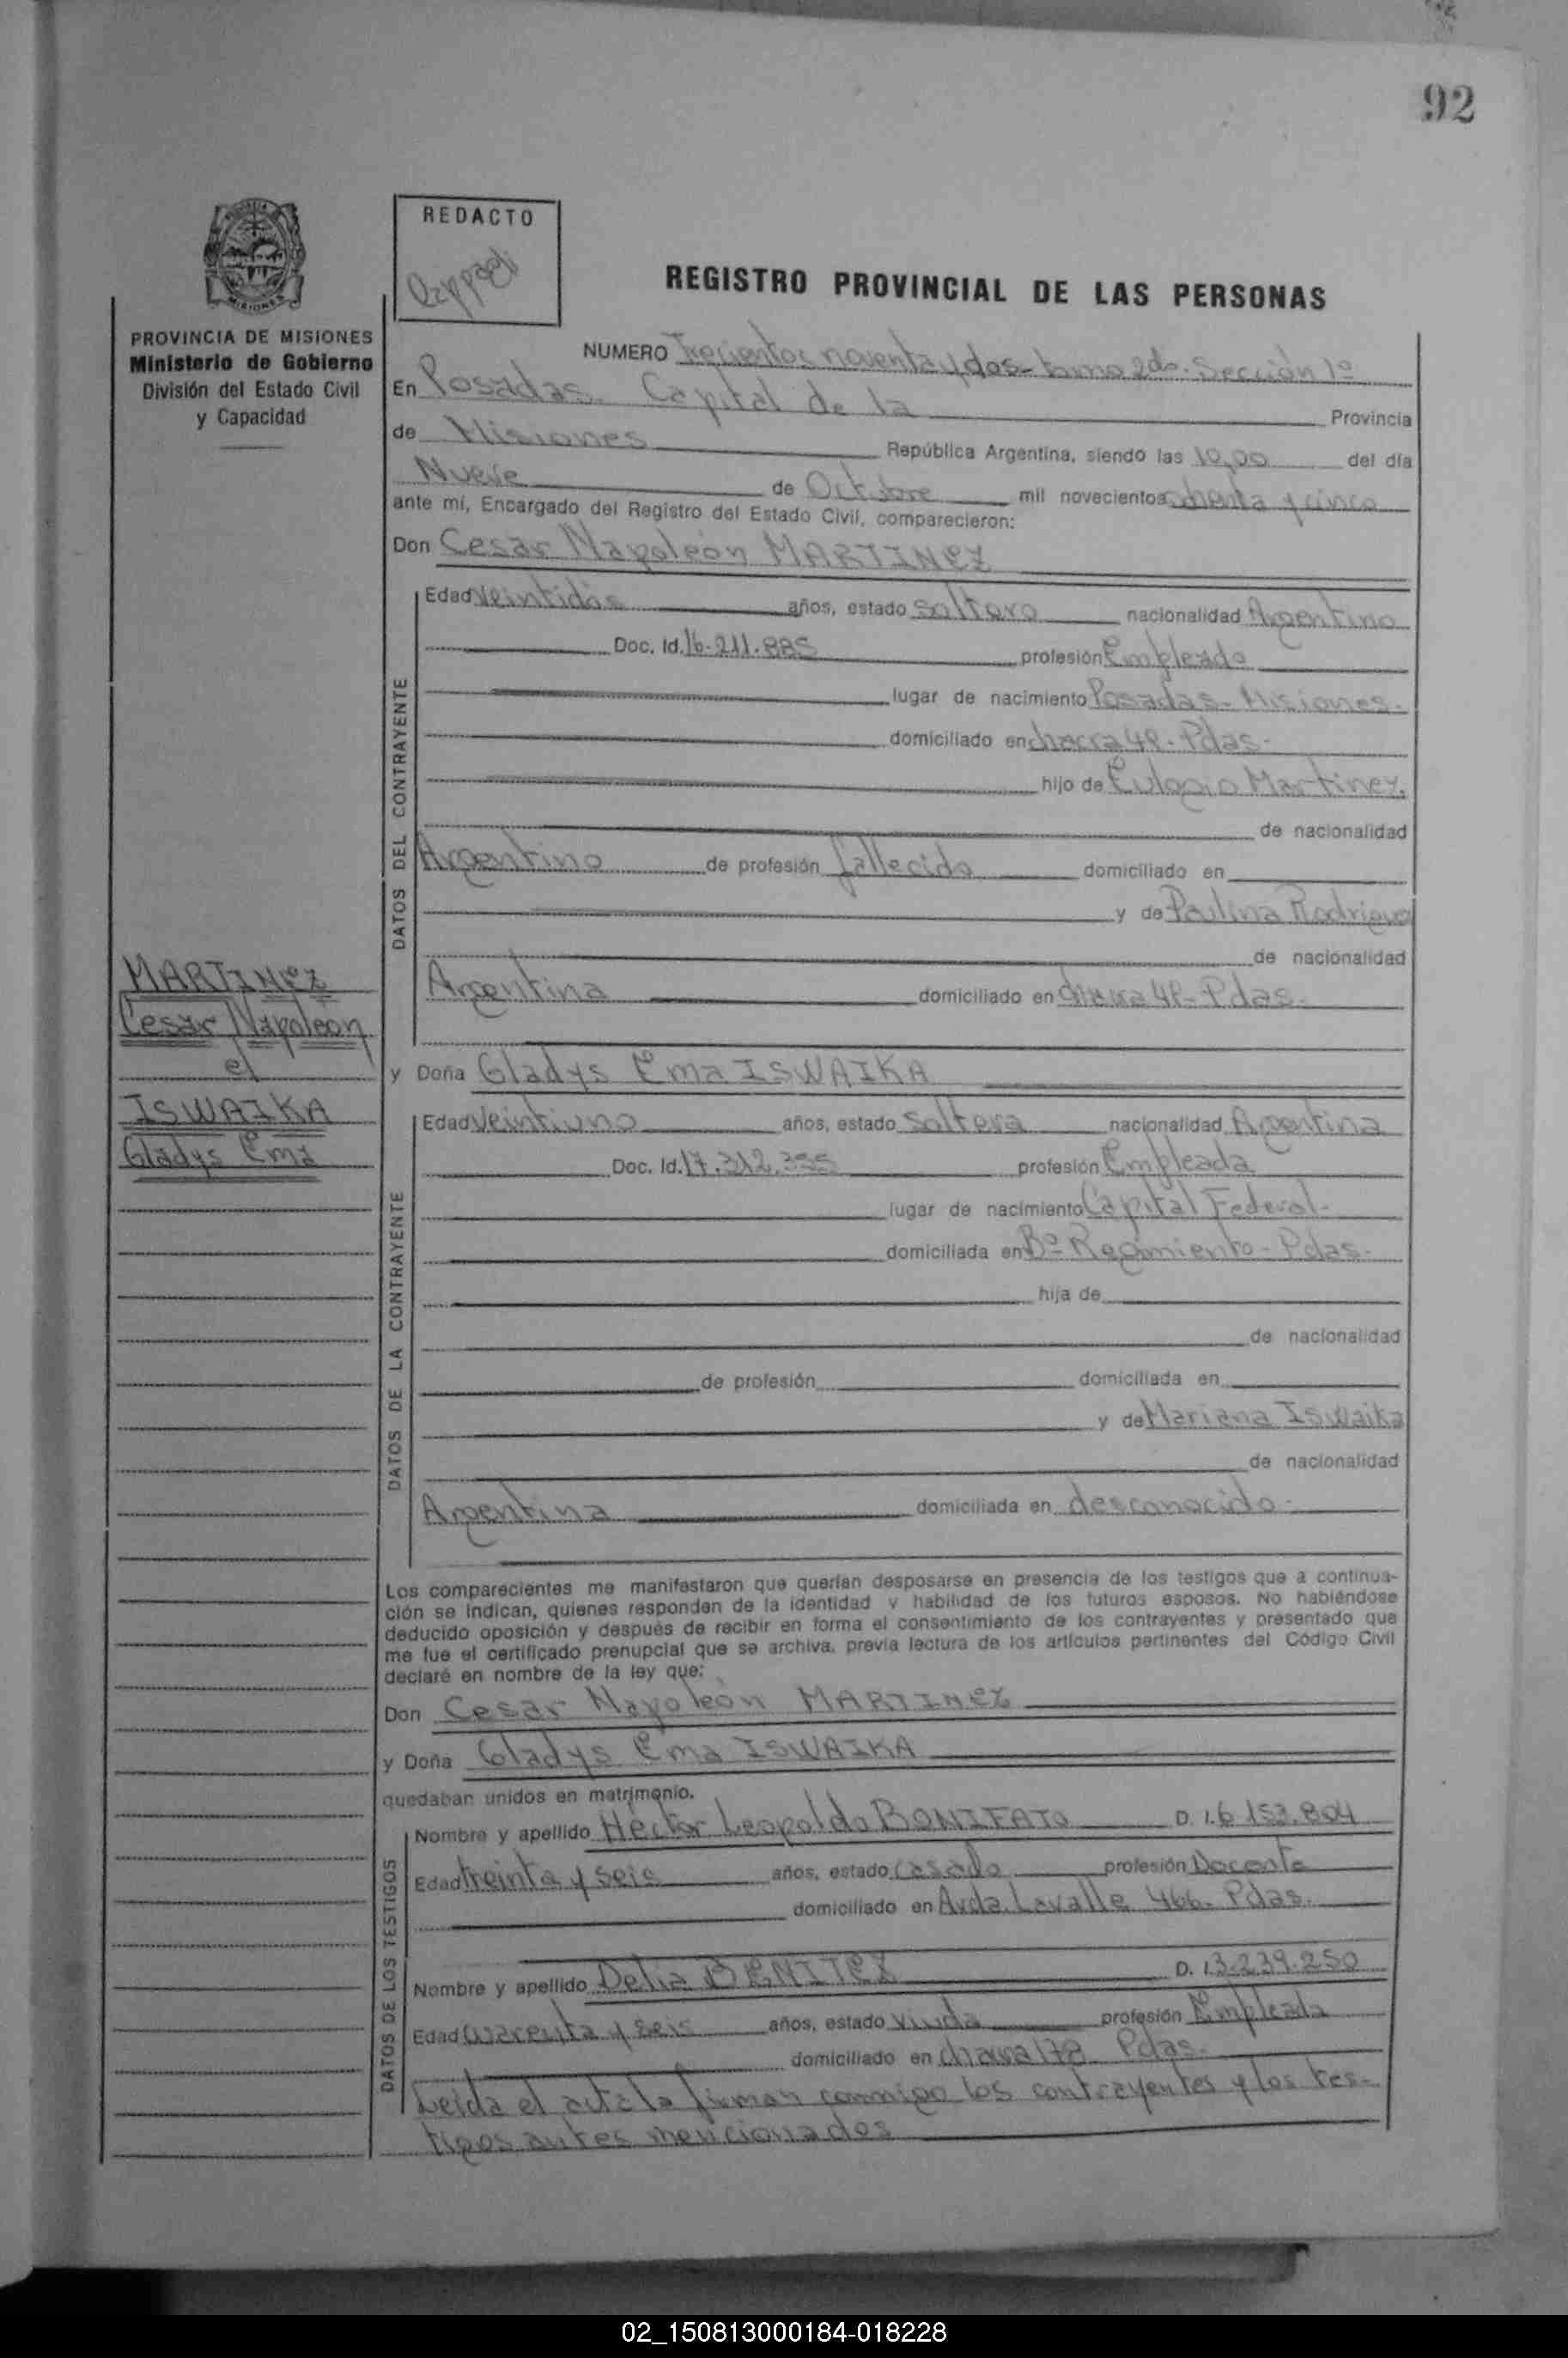 92
REDACTO
REGISTRO PROVINCIAL DE LAS PERSONAS
MISIONES
PROVINCIA DE MISIONES
Ministerio de Gobierno
División del Estado Civil
y Capacidad
NUMERO Trecientos noventa y dos - tomo 2do. Sección 1º
En Posadas. Capital de la Provincia
de Misiones República Argentina, siendo las 10,00 del día
Nueve de Octubre mil novecientos ochenta y cinco
ante mí, Encargado del Registro del Estado Civil, comparecieron:
Don Cesar Napoleón MARTINEZ
DATOS DEL CONTRAYENTE
Edad Veintidos años, estado soltero nacionalidad Argentino
Doc. Id. 16.211.885 profesión Empleado
lugar de nacimiento Posadas - Misiones.
domiciliado en chacra 49 - Pdas.
hijo de Eulogio Martinez.
de nacionalidad
Argentino de profesión fallecido domiciliado en
y de Paulina Rodrigue
de nacionalidad
Argentina domiciliado en Pdas.
MARTINEZ
Cesar Napoleon
el
ISWAIKA
Gladys Ema
y Doña Gladys Ema ISWAIKA
DATOS DE LA CONTRAYENTE
Edad Veintiuno años, estado soltera nacionalidad Argentina
Doc. Id. 17.312.355 profesión Empleada
lugar de nacimiento Capital Federal -
domiciliada en Bº Regimiento - Pdas.
hija de
de nacionalidad
de profesión domiciliada en
y de Mariana Iswaika
de nacionalidad
Argentina domiciliada en desconocido -
Los comparecientes me manifestaron que querían desposarse en presencia de los testigos que a continua-
ción se indican, quienes responden de la identidad y habilidad de los futuros esposos. No habiéndose
deducido oposición y después de recibir en forma el consentimiento de los contrayentes y presentado que
me fue el certificado prenupcial que se archiva, previa lectura de los artículos pertinentes del Código Civil
declaré en nombre de la ley que:
Don Cesar Napoleón MARTINEZ
y Doña Gladys Ema ISWAIKA
quedaban unidos en matrimonio.
DATOS DE LOS TESTIGOS
Nombre y apellido Héctor Leopoldo BONIFATO D. I. 6.153.804
Edad treinta y seis años, estado casado profesión Docente
domiciliado en Avda. Lavalle 466 - Pdas.
Nombre y apellido Delia BENITEZ D. I. 3.239.250
Edad cuarenta y seis años, estado viuda profesión Empleada
domiciliado en chacra 178 Pdas.
Leída el acta la firman conmigo los contrayentes y los tes-
tigos antes mencionados
02_150813000184-018228